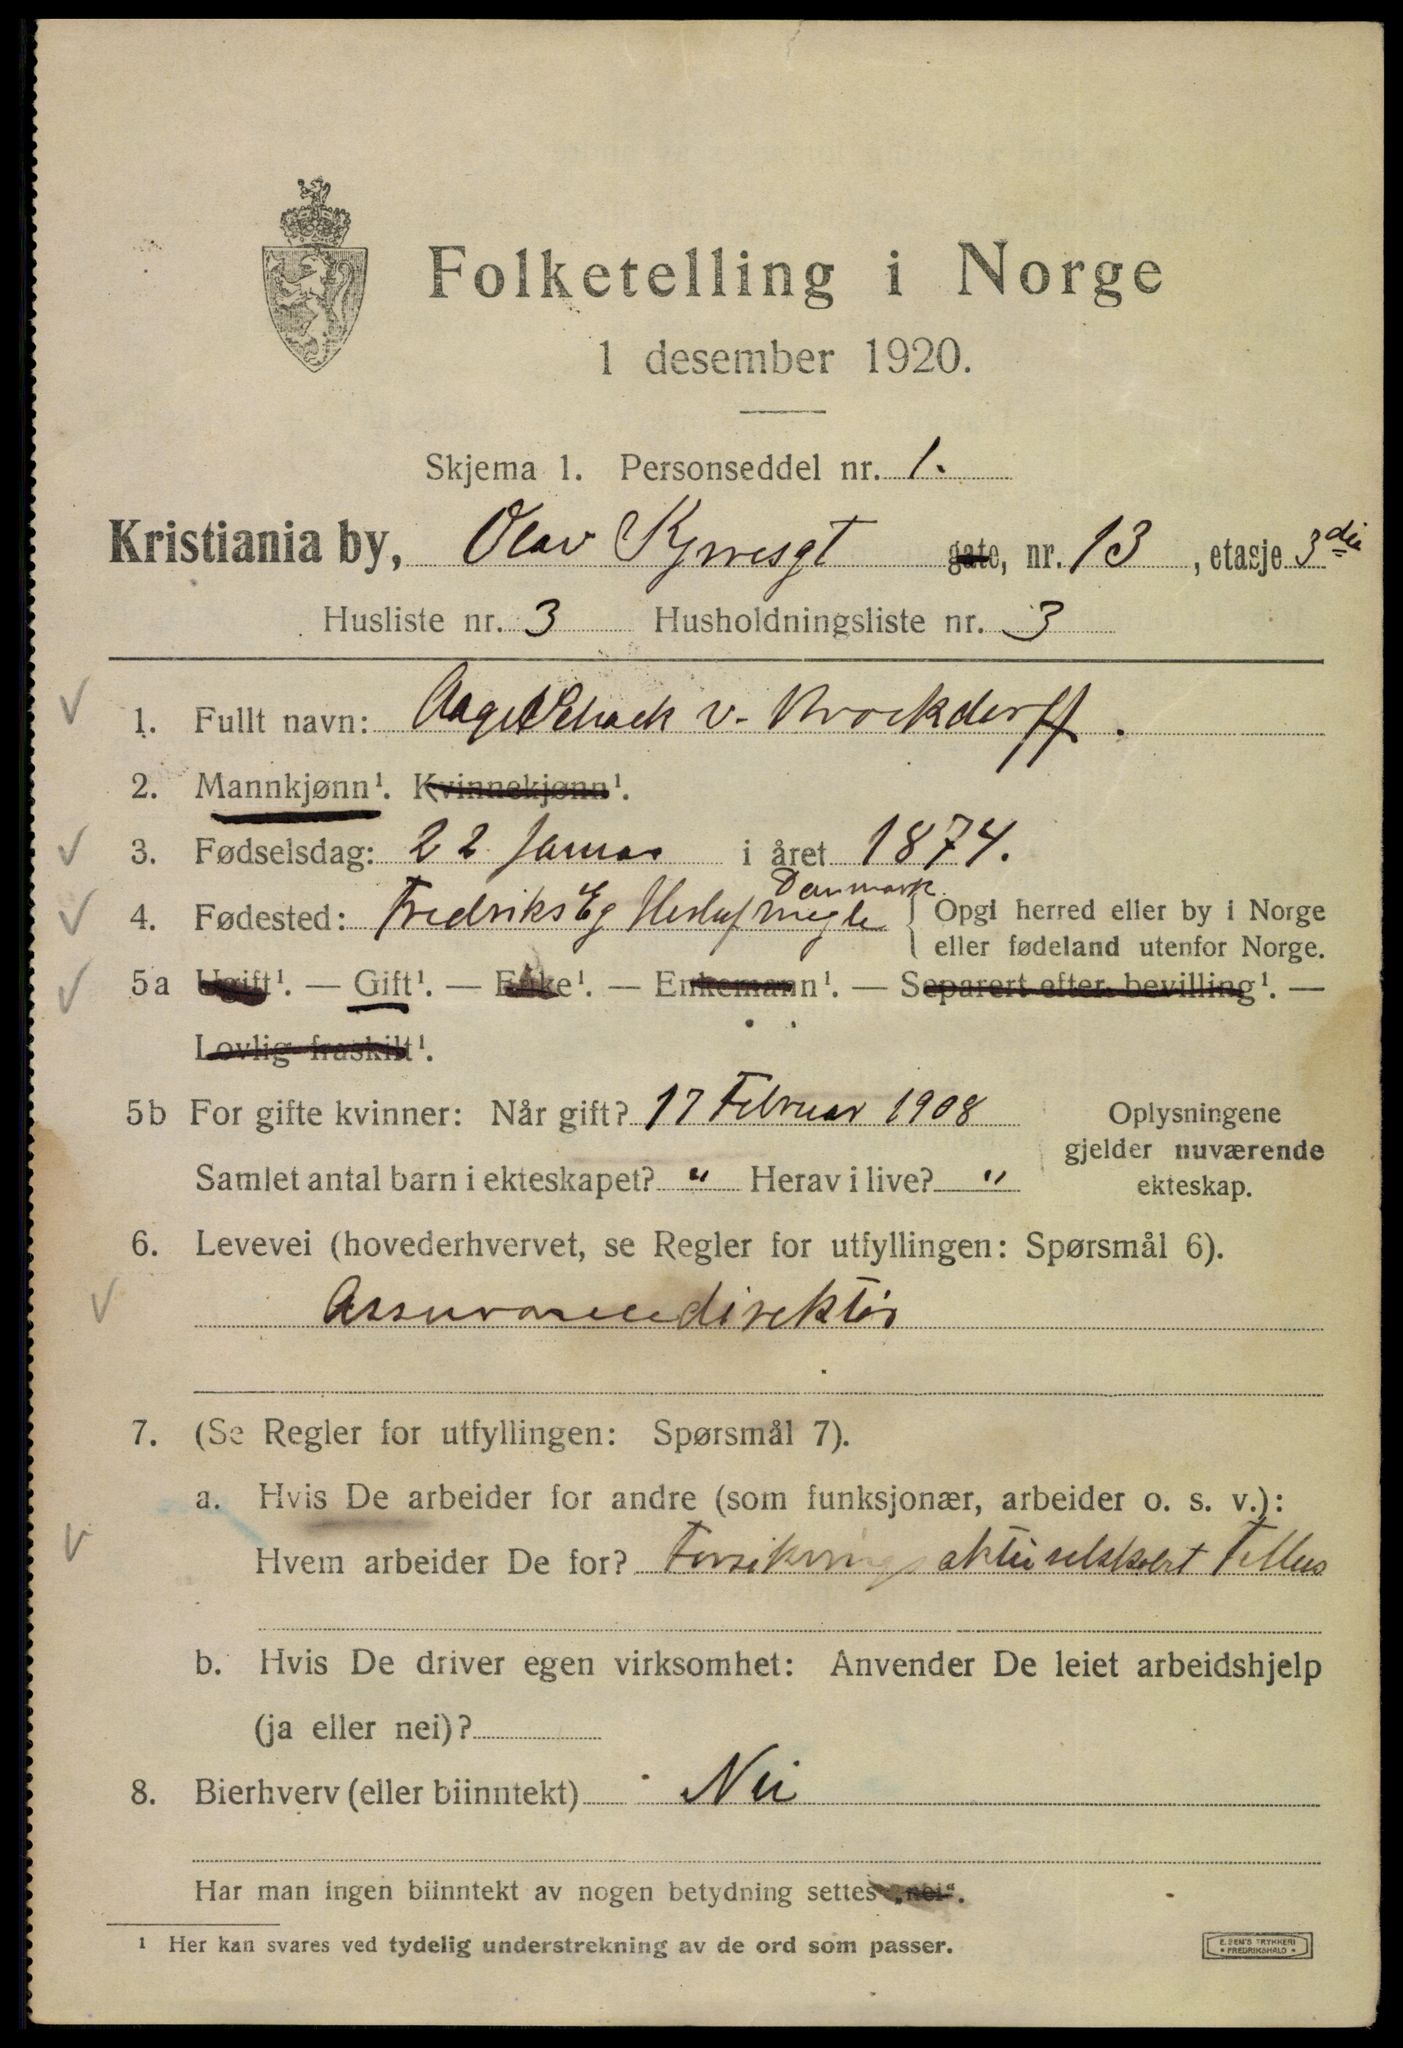 Folketelling i Norge
1 desember 1920.
Skjema 1. Personseddel nr. 1.
Kristiania by, Olav Kyrresgt gate, nr. 13, etasje 3die
Husliste nr. 3 Husholdningsliste nr. 3
1. Fullt navn: Aage Schack v. Brockdorff.
2. Mannkjønn¹. Kvinnekjønn¹.
3. Fødselsdag: 22 Januar i året 1874.
Danmark
4. Fødested: Fredriks Eg { Opgi herred eller by i Norge
eller fødeland utenfor Norge.
5a Ugift¹. — Gift¹. — Enke¹. — Enkemann¹. — Separert efter bevilling¹. —
Lovlig fraskilt¹.
5b For gifte kvinner: Når gift? 17 Februar 1908 Oplysningene
gjelder nuværende
Samlet antal barn i ekteskapet? " Herav i live? " ekteskap.
6. Levevei (hovederhvervet, se Regler for utfyllingen: Spørsmål 6).
Assurancedirektør
7. (Se Regler for utfyllingen: Spørsmål 7).
a. Hvis De arbeider for andre (som funksjonær, arbeider o. s. v.):
Hvem arbeider De for? Forsikringsaktieselskabet Tellus
b. Hvis De driver egen virksomhet: Anvender De leiet arbeidshjelp
(ja eller nei)?
8. Bierhverv (eller biinntekt) Nei
Har man ingen biinntekt av nogen betydning settes „nei“.
¹ Her kan svares ved tydelig understrekning av de ord som passer.
E. SEM'S TRYKKERI
• FREDRIKSHALD •